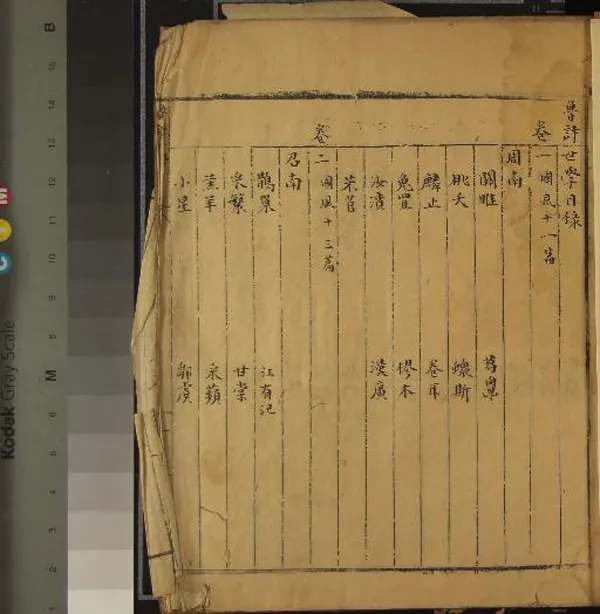 魯詩世學目錄
卷一 國風十一篇
周南
關雎 葛覃
桃夭 斯
麟止 卷耳
兔罝 樛木
汝濆 漢廣
芣苢
卷二 國風十三篇
召南
鵲巢 江有汜
采繁 甘棠
羔羊 采蘋
小星 鄒虞
Kodak Gray Scale
C Y M
B
M
15
14
13
12
11
10
9
8
6
5
4
3
2
1